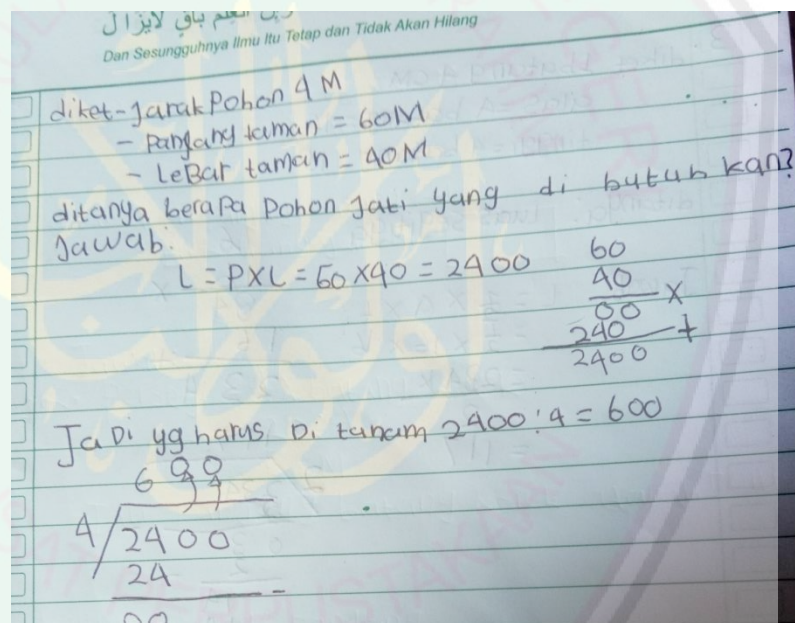 Dan Sesungguhnya Ilmu Itu Tetap dan Tidak Akan Hilang
diket - Jarak Pohon 4 M
- Panjang taman = 60M
- LeBar taman = 40M
ditanya berapa Pohon Jati yang di butuh kan?
Jawab:
L = P X L = 60 X 40 = 2400
60
40
00 X
240 +
2400
Jadi yg harus Di tanam 2400 : 4 = 600
600
4 / 2400
24 -
00